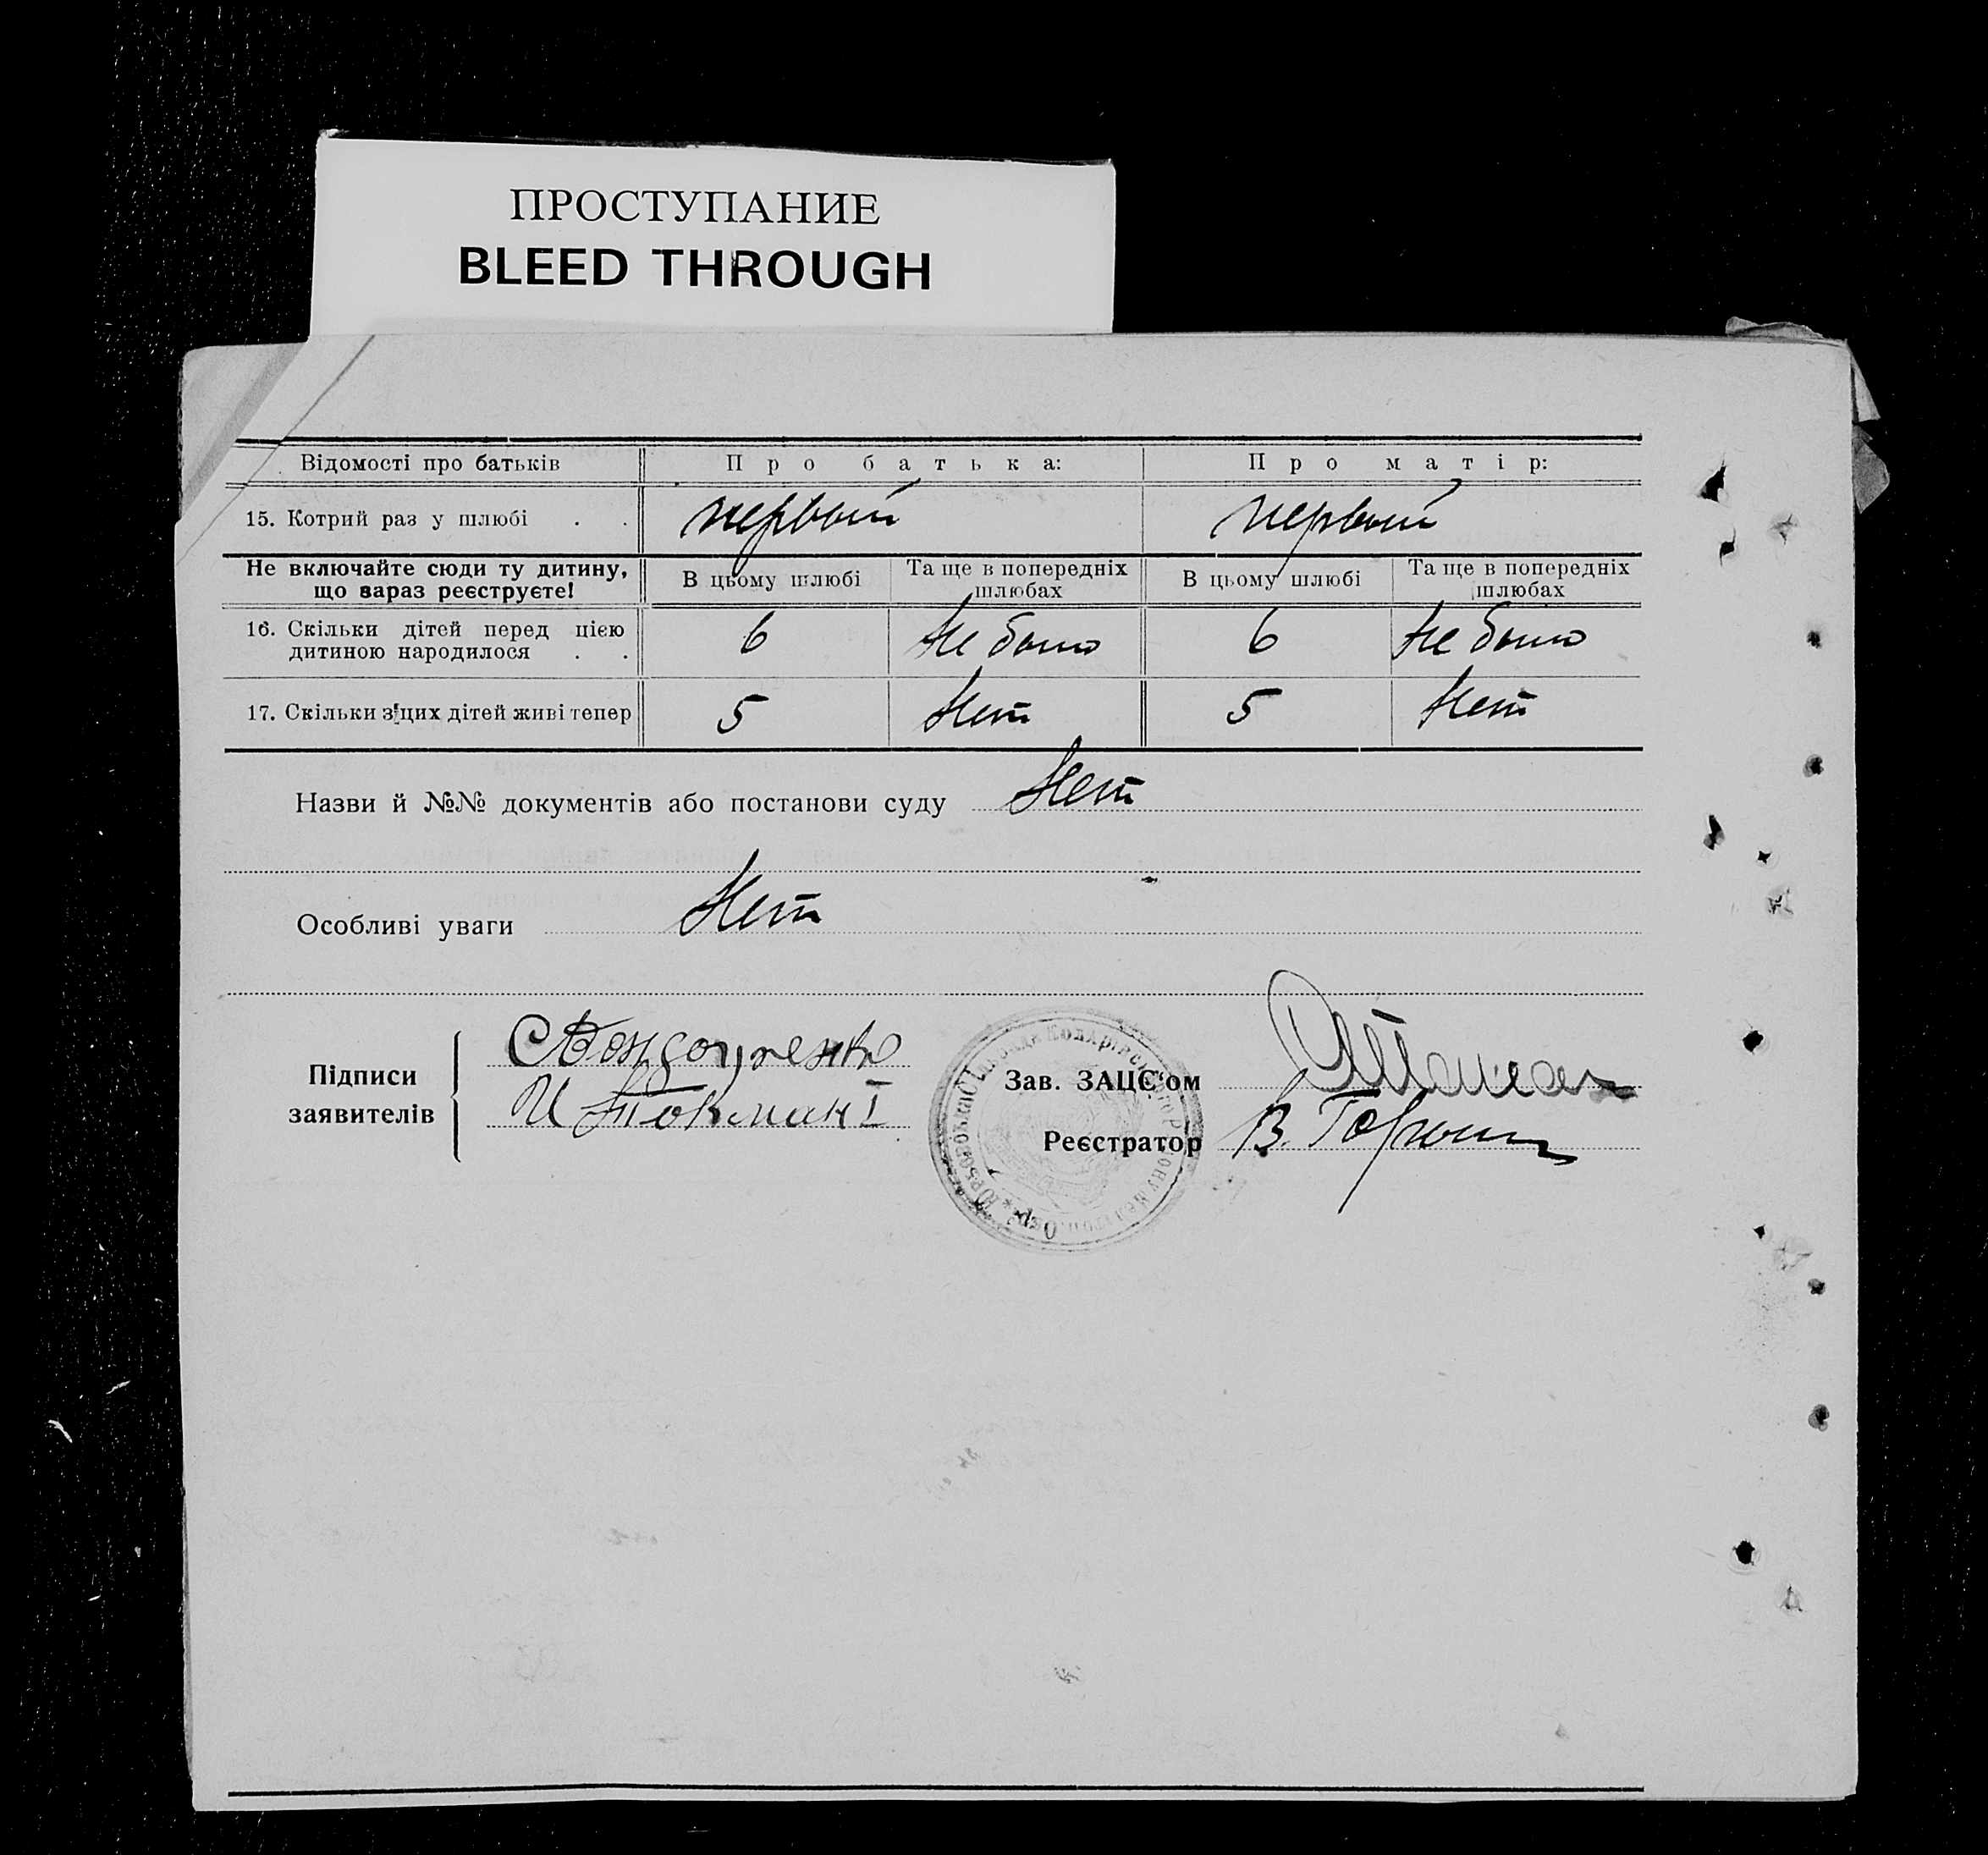 ПРОСТУПАНИЕ
BLEED THROUGH
Відомості про батьків Про батька: Про матір:
15. Котрий раз у шлюбі . . первый первый
Не включайте сюди ту дитину, що зараз реєструєте! В цьому шлюбі Та ще в попередніх шлюбах В цьому шлюбі Та ще в попередніх шлюбах
16. Скільки дітей перед цією дитиною народилося . . 6 Не было 6 Не было
17. Скільки з цих дітей живі тепер 5 Нет 5 Нет
Назви й №№ документів або постанови суду Нет
Особливі уваги Нет
Підписи заявителів
И Токман I
Зав. ЗАЦС'ом
Реєстратор В.